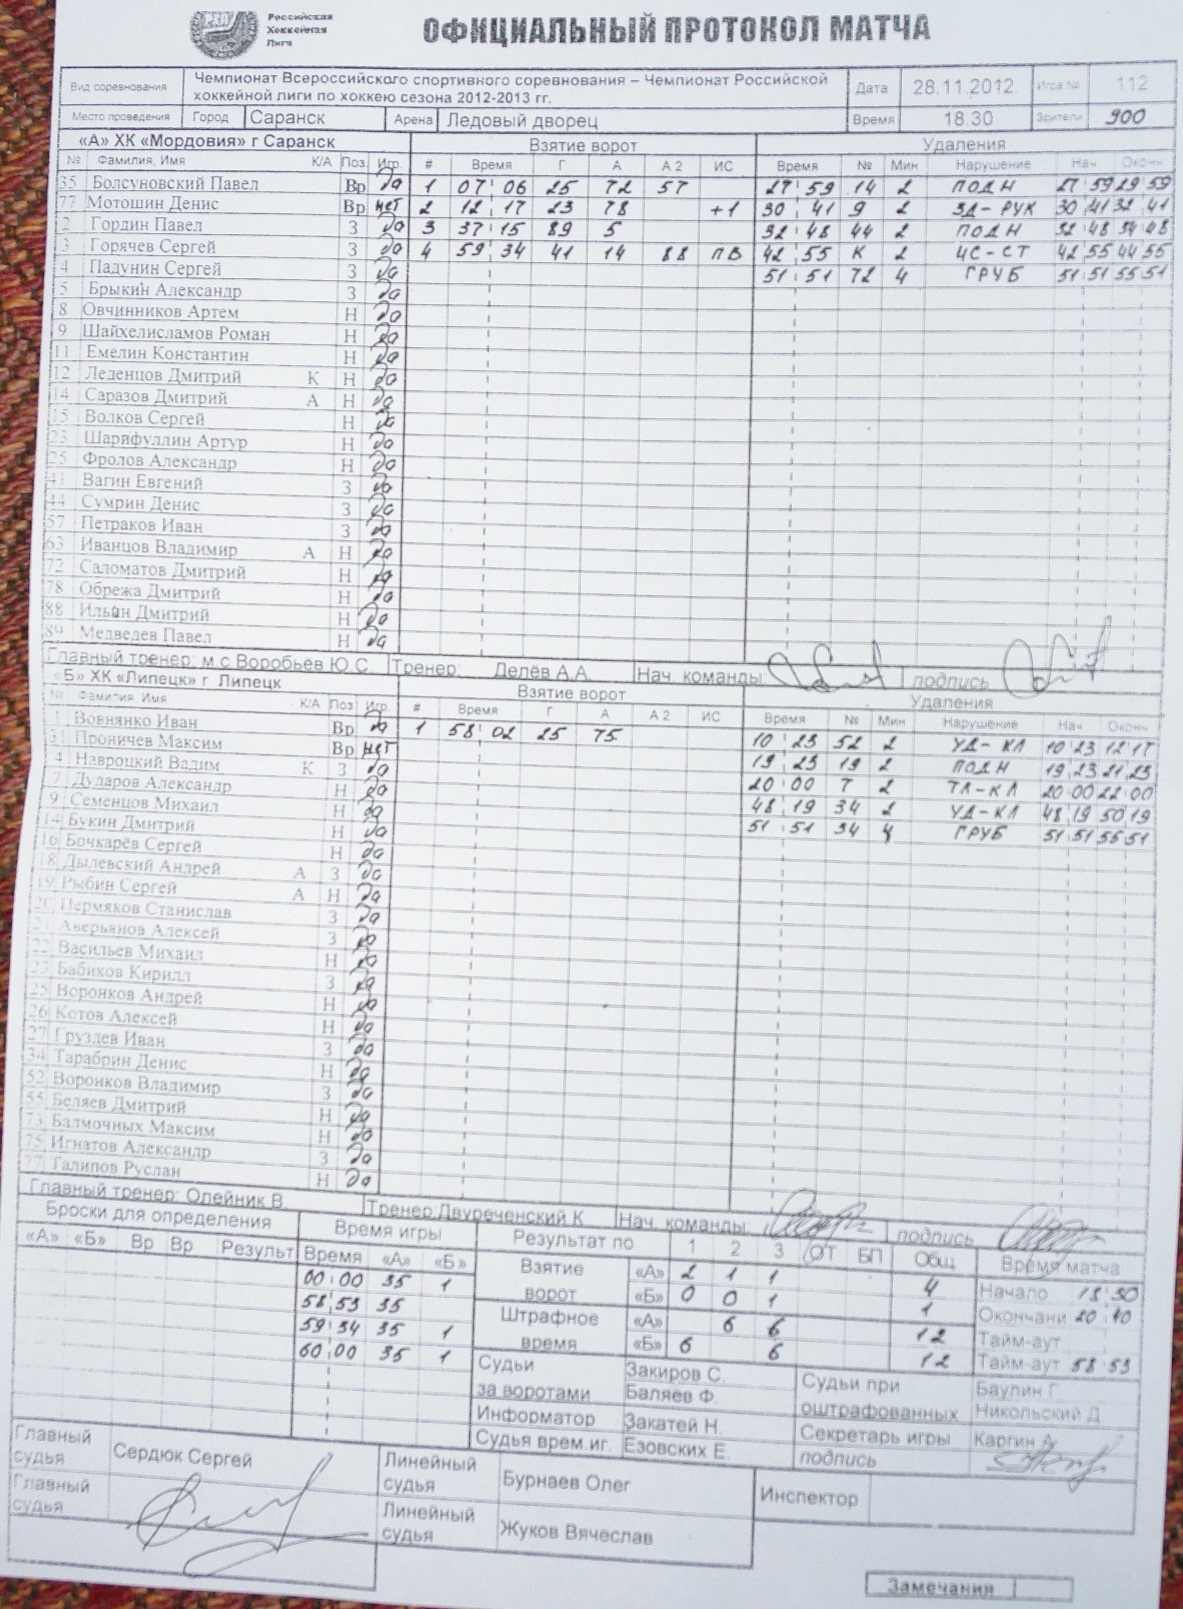 Российская
Хоккейная
Лига
ОФИЦИАЛЬНЫЙ ПРОТОКОЛ МАТЧА
Вид соревнования Чемпионат Всероссийского спортивного соревнования – Чемпионат Российской хоккейной лиги по хоккею сезона 2012-2013 гг. Дата 28.11.2012. Игра № 112
Место проведения Город Саранск Арена Ледовый дворец Время 18.30 Зрители 900
«А» ХК «Мордовия» г Саранск Взятие ворот Удаления
№ Фамилия, Имя К/А Поз. Игр. # Время Г А А 2 ИС Время № Мин Нарушение Нач Оконч
35 Болсуновский Павел Вр да 1 07 06 25 72 57 27 59 14 2 ПОДН 27 59 29 59
77 Мотошин Денис Вр нет 2 12 17 23 78 +1 30 41 9 2 ЗД-РУК 30 41 32 41
2 Гордин Павел З да 3 37 15 89 5 32 48 44 2 ПОДН 32 48 34 48
3 Горячев Сергей З да 4 59 34 41 14 88 ПВ 42 55 К 2 ЧС-СТ 42 55 44 55
4 Падунин Сергей З да 51 51 72 4 ГРУБ 51 51 55 51
5 Брыкин Александр З да
8 Овчинников Артем Н да
9 Шайхелисламов Роман Н да
11 Емелин Константин Н да
12 Леденцов Дмитрий К Н да
14 Саразов Дмитрий А Н да
15 Волков Сергей Н да
23 Шарифуллин Артур Н да
25 Фролов Александр Н да
41 Вагин Евгений З да
44 Сумрин Денис З да
57 Петраков Иван З да
63 Иванцов Владимир А Н да
72 Саломатов Дмитрий Н да
78 Обрежа Дмитрий Н да
88 Ильин Дмитрий Н да
89 Медведев Павел Н да
Главный тренер: м.с.Воробьёв Ю.С. Тренер: Делёв А.А. Нач. команды: подпись
«Б» ХК «Липецк» г Липецк Взятие ворот Удаления
№ Фамилия, Имя К/А Поз Игр # Время Г А А 2 ИС Время № Мин Нарушение Нач Оконч
1 Вовнянко Иван Вр да 1 58 02 25 75 10 23 52 2 УД-КЛ 10 23 12 17
31 Проничев Максим Вр нет 19 23 19 2 ПОДН 19 23 21 23
4 Навроцкий Вадим К З да 20 00 7 2 ТЛ-КЛ 20 00 22 00
7 Дударов Александр Н да 48 19 34 2 УД-КЛ 48 19 50 19
9 Семенцов Михаил Н да 51 51 34 4 ГРУБ 51 51 55 51
14 Букин Дмитрий Н да
16 Бочкарёв Сергей Н да
18 Дылевский Андрей А З да
19 Рыбин Сергей А Н да
20 Пермяков Станислав З да
21 Аверьянов Алексей З да
22 Васильев Михаил Н да
23 Бабиков Кирилл З да
25 Воронков Андрей Н да
26 Котов Алексей Н да
27 Груздев Иван З да
34 Тарабрин Денис Н да
52 Воронков Владимир З да
55 Беляев Дмитрий Н да
73 Балмочных Максим Н да
75 Игнатов Александр З да
77 Галипов Руслан Н да
Главный тренер: Олейник В. Тренер Двуреченский К Нач. команды: подпись
Броски для определения Время игры Результат по 1 2 3 ОТ БП Общ Время матча
«А» «Б» Вр Вр Результ Время «А» «Б» Взятие ворот «А» 2 1 1 4 Начало 18 30
00 00 35 1 «Б» 0 0 1 1 Окончани 20 40
58 53 35 Штрафное время «А» 6 6 12 Тайм-аут
59 34 35 1 «Б» 6 6 12 Тайм-аут 58 53
60 00 35 1 Судьи за воротами Закиров С. Баляев Ф. Судьи при оштрафованных Баулин Г. Никольский Д.
Информатор Закатей Н. Секретарь игры Каргин А
Судья врем.иг. Езовских Е. подпись
Главный судья Сердюк Сергей Линейный судья Бурнаев Олег Инспектор
Главный судья Линейный судья Жуков Вячеслав
Замечания